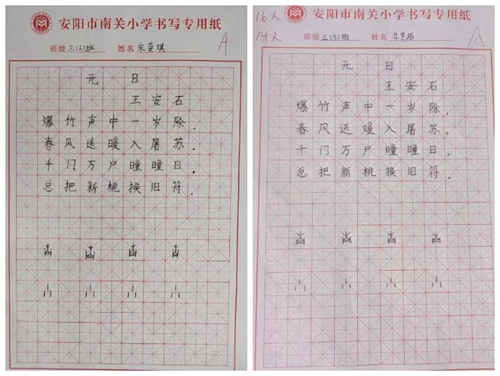 安阳市南关小学书写专用纸
A
班级 三(2)班 姓名
元日
王安石
爆竹声中一岁除，
春风送暖入屠苏。
千门万户曈曈日，
总把新桃换旧符。
16人
14人
安阳市南关小学书写专用纸
A
班级 三(3)班 姓名
元日
王安石
爆竹声中一岁除，
春风送暖入屠苏。
千门万户曈曈日，
总把新桃换旧符。